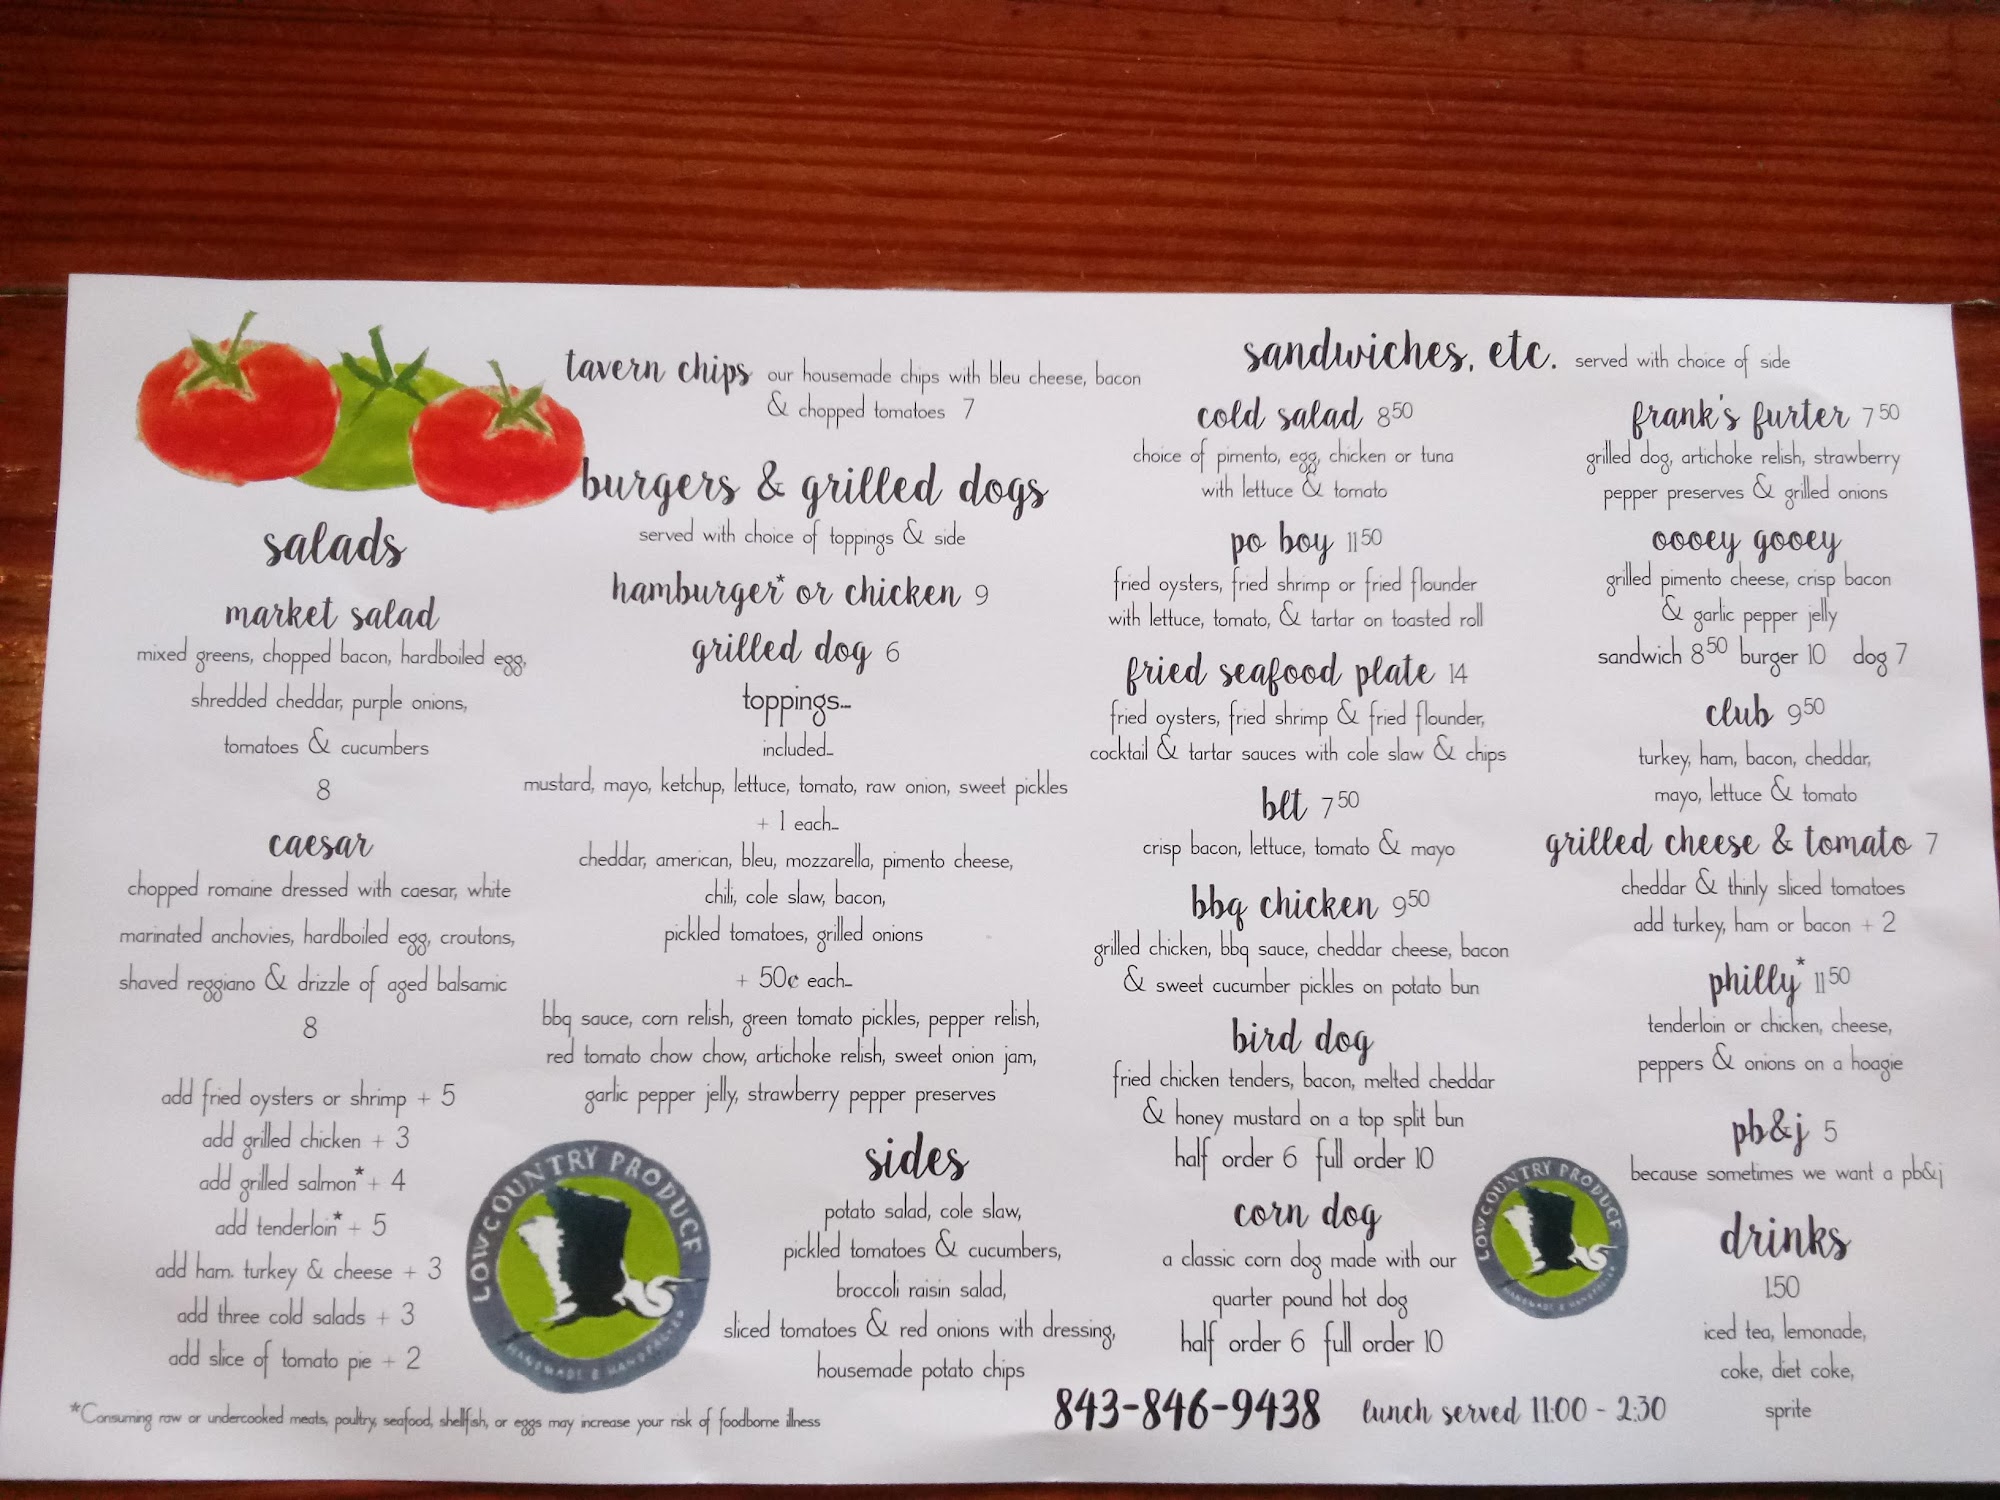 tavern chips our housemade chips with bleu cheese, bacon
& chopped tomatoes 7
salads
market salad
mixed greens, chopped bacon, hardboiled egg,
shredded cheddar, purple onions,
tomatoes & cucumbers
8
caesar
chopped romaine dressed with caesar, white
marinated anchovies, hardboiled egg, croutons,
shaved reggiano & drizzle of aged balsamic
8
add fried oysters or shrimp + 5
add grilled chicken + 3
add grilled salmon* + 4
add tenderloin* + 5
add ham. turkey & cheese + 3
add three cold salads + 3
add slice of tomato pie + 2
*Consuming raw or undercooked meats, poultry, seafood, shellfish, or eggs may increase your risk of foodborne illness
burgers & grilled dogs
served with choice of toppings & side
hamburger* or chicken 9
grilled dog 6
toppings...
included...
mustard, mayo, ketchup, lettuce, tomato, raw onion, sweet pickles
+ 1 each...
cheddar, american, bleu, mozzarella, pimento cheese,
chili, cole slaw, bacon,
pickled tomatoes, grilled onions
+ 50¢ each...
bbq sauce, corn relish, green tomato pickles, pepper relish,
red tomato chow chow, artichoke relish, sweet onion jam,
garlic pepper jelly, strawberry pepper preserves
LOWCOUNTRY PRODUCE
HANDMADE & HANDPACKED
sides
potato salad, cole slaw,
pickled tomatoes & cucumbers,
broccoli raisin salad,
sliced tomatoes & red onions with dressing,
housemade potato chips
sandwiches, etc. served with choice of side
cold salad 8 50
choice of pimento, egg, chicken or tuna
with lettuce & tomato
po boy 11 50
fried oysters, fried shrimp or fried flounder
with lettuce, tomato, & tartar on toasted roll
fried seafood plate 14
fried oysters, fried shrimp & fried flounder,
cocktail & tartar sauces with cole slaw & chips
blt 7 50
crisp bacon, lettuce, tomato & mayo
bbq chicken 9 50
grilled chicken, bbq sauce, cheddar cheese, bacon
& sweet cucumber pickles on potato bun
bird dog
fried chicken tenders, bacon, melted cheddar
& honey mustard on a top split bun
half order 6 full order 10
corn dog
a classic corn dog made with our
quarter pound hot dog
half order 6 full order 10
frank's furter 7 50
grilled dog, artichoke relish, strawberry
pepper preserves & grilled onions
oooey gooey
grilled pimento cheese, crisp bacon
& garlic pepper jelly
sandwich 8 50 burger 10 dog 7
club 9 50
turkey, ham, bacon, cheddar,
mayo, lettuce & tomato
grilled cheese & tomato 7
cheddar & thinly sliced tomatoes
add turkey, ham or bacon + 2
philly* 11 50
tenderloin or chicken, cheese,
peppers & onions on a hoagie
pb&j 5
because sometimes we want a pb&j
LOWCOUNTRY PRODUCE
HANDMADE & HANDPACKED
drinks
1.50
iced tea, lemonade,
coke, diet coke,
sprite
843-846-9438 lunch served 11:00 - 2:30